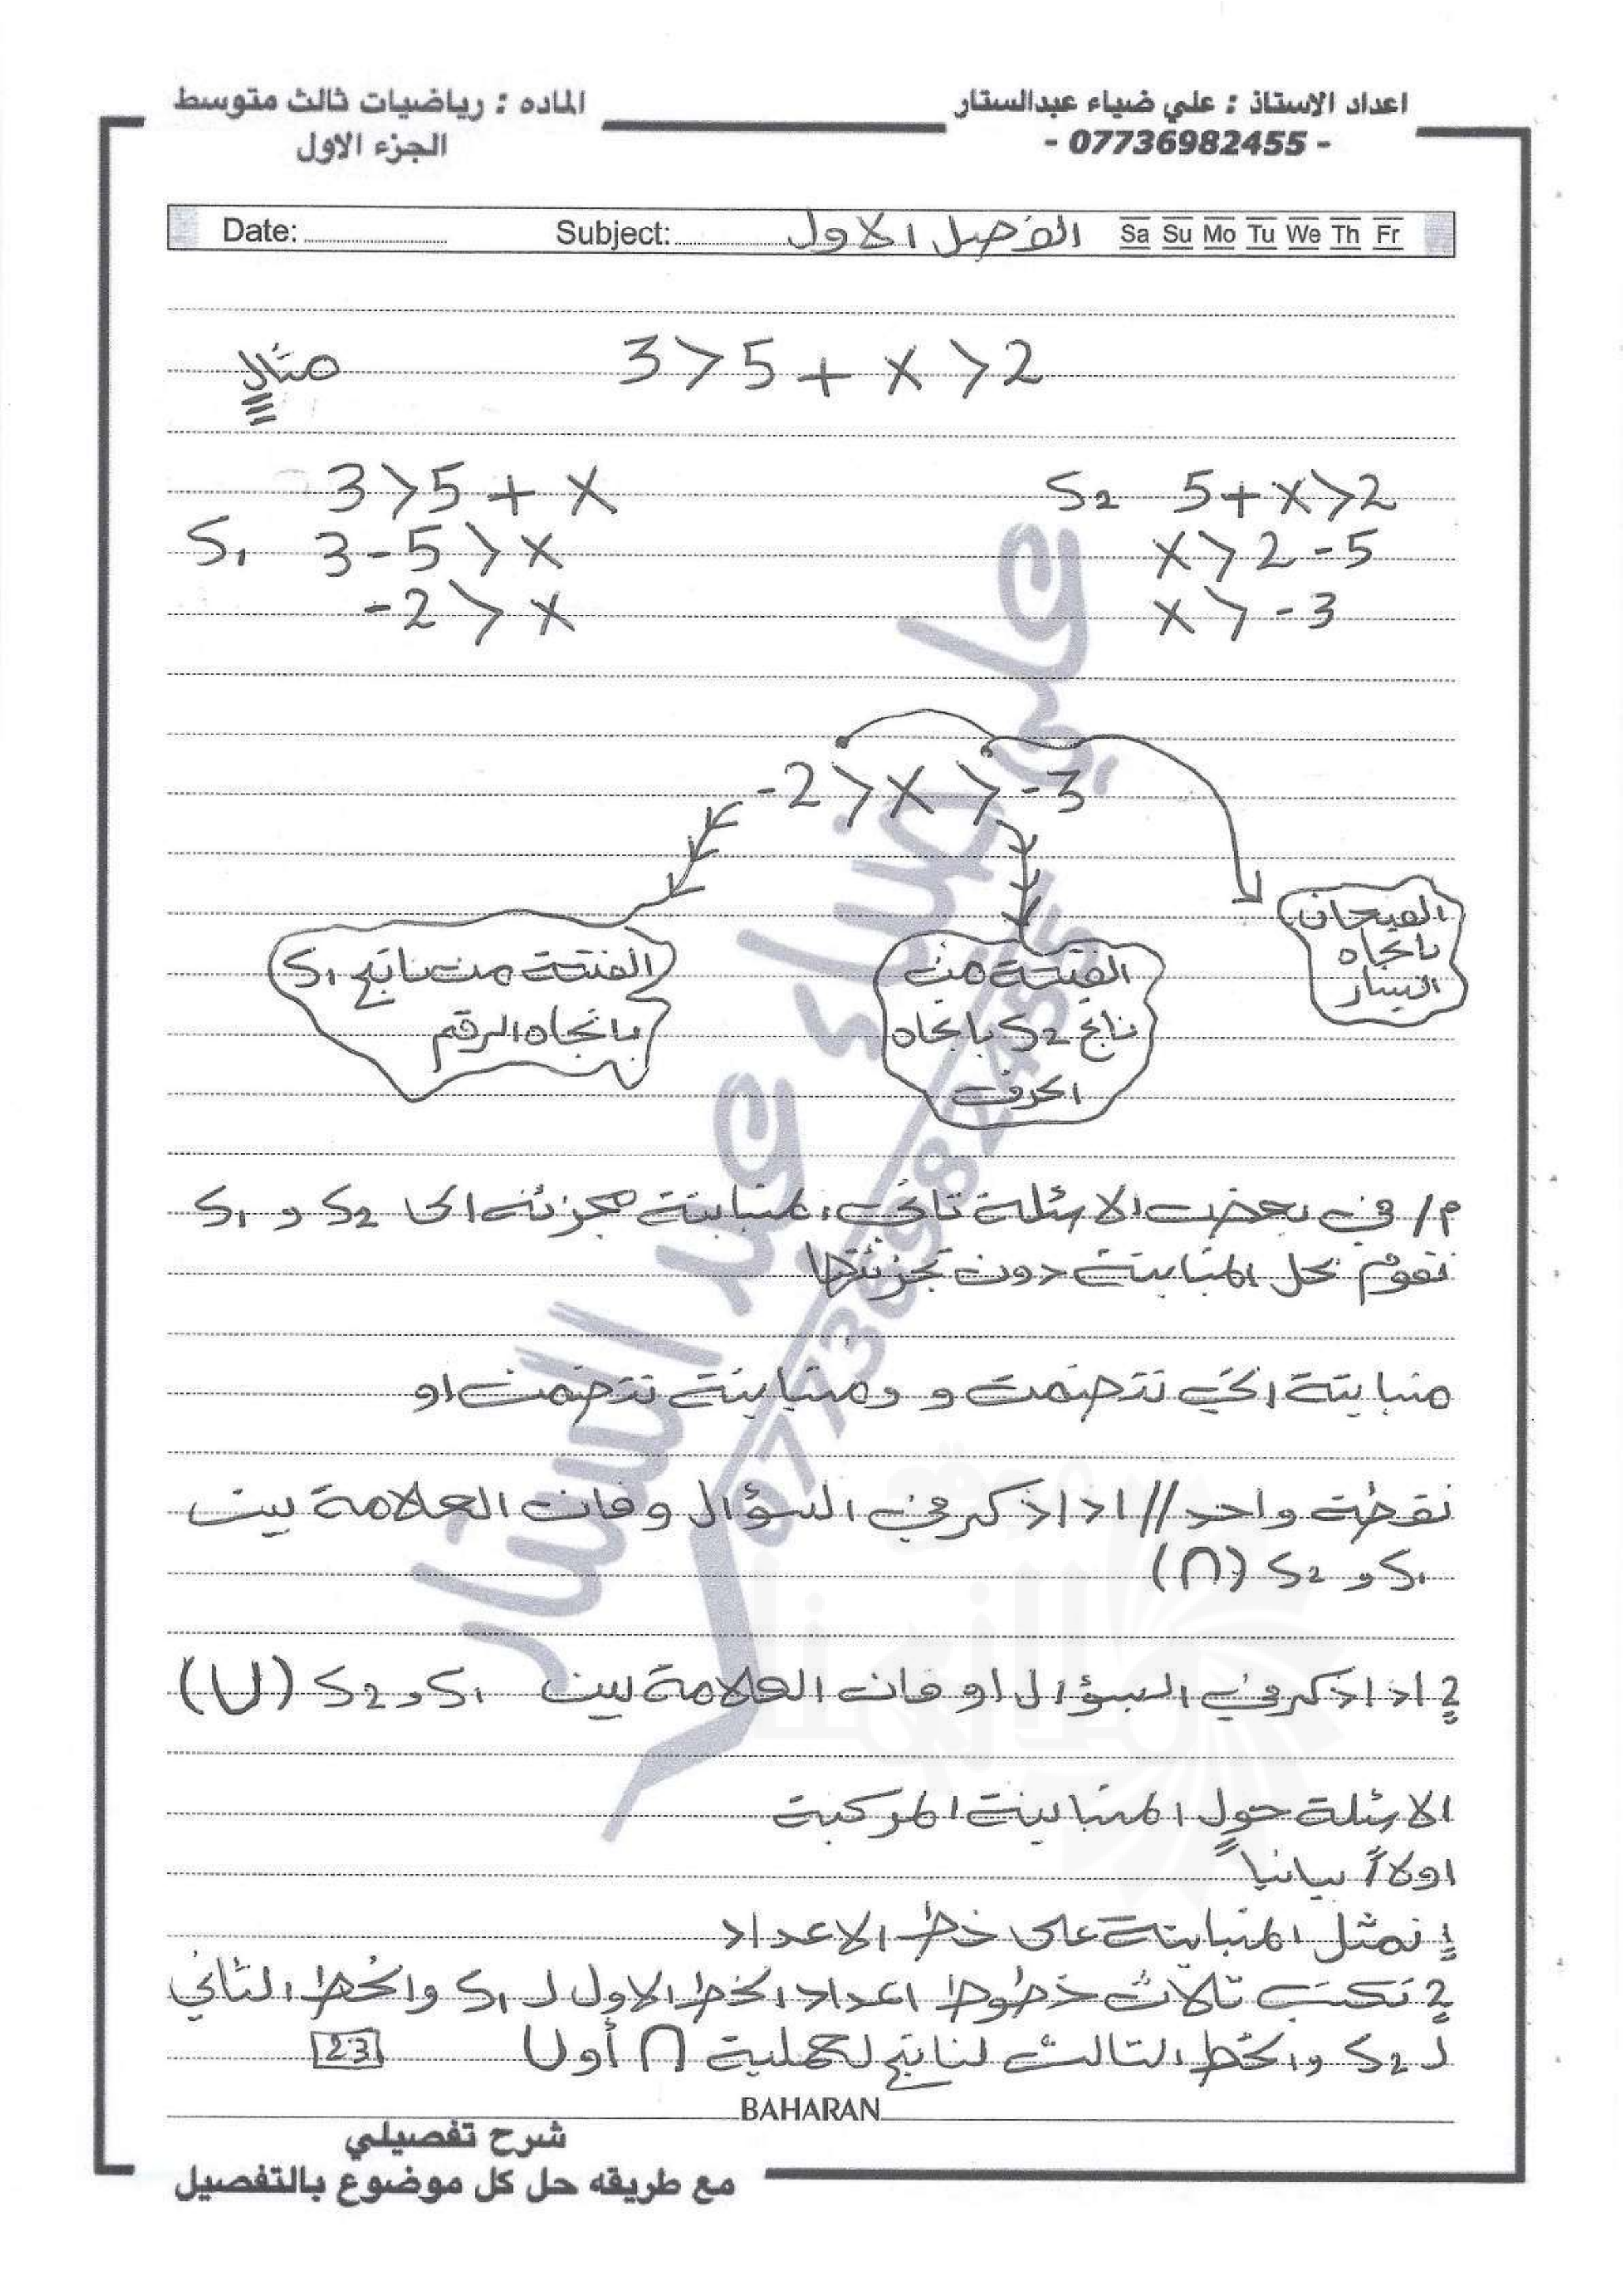 اعداد الاستاذ : علي ضياء عبدالستار
- 07736982455 -
الماده : رياضيات ثالث متوسط
الجزء الاول
Date: Subject: الفصل الاول Sa Su Mo Tu We Th Fr
مثال 3>5+x>2
3>5+x
S1 3-5>x
-2>x
S2 5+x>2
x>2-5
x>-3
-2>x>-3
الفتحتان
باتجاه
اليسار
الفتحة من
ناتج S2 باتجاه
الحرف
الفتحة من ناتج S1
باتجاه الرقم
م/ في بعض الاسئلة تاتي المتباينة مجزئه الى S2 و S1
نقوم بحل المتباينة دون تجزئتها
متباينة التي تتضمن و ومتباينة تتضمن او
نقطة واحد // اذا ذكر في السؤال و فان العلامة بين
S1 و S2 (∩)
2 اذا ذكر في السؤال او فان العلامة بين S1 و S2 (∪)
الاسئلة حول المتباينة المركبة
اولاً بيانيا
1 نمثل المتباينة على خط الاعداد
2 نكتب ثلاث خطوط اعداد الخط الاول لـ S1 والخط الثاني
لـ S2 والخط الثالث لناتج لعملية ∩ أو ∪
23
BAHARAN
شرح تفصيلي
مع طريقه حل كل موضوع بالتفصيل
علي ضياء عبد الستار
07736982455